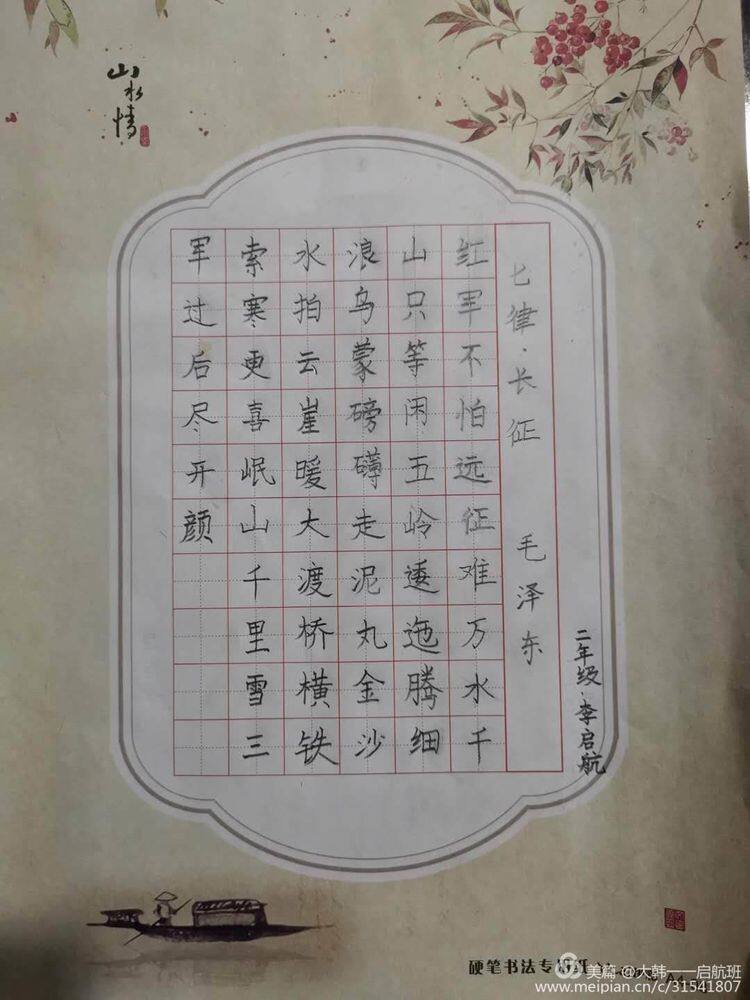 山水情
七律·长征 毛泽东
二年级·李启航
红军不怕远征难万水千
山只等闲五岭逶迤腾细
浪乌蒙磅礴走泥丸金沙
水拍云崖暖大渡桥横铁
索寒更喜岷山千里雪三
军过后尽开颜
硬笔书法专用纸
美篇 @大韩——启航班
www.meipian.cn/c/31541807